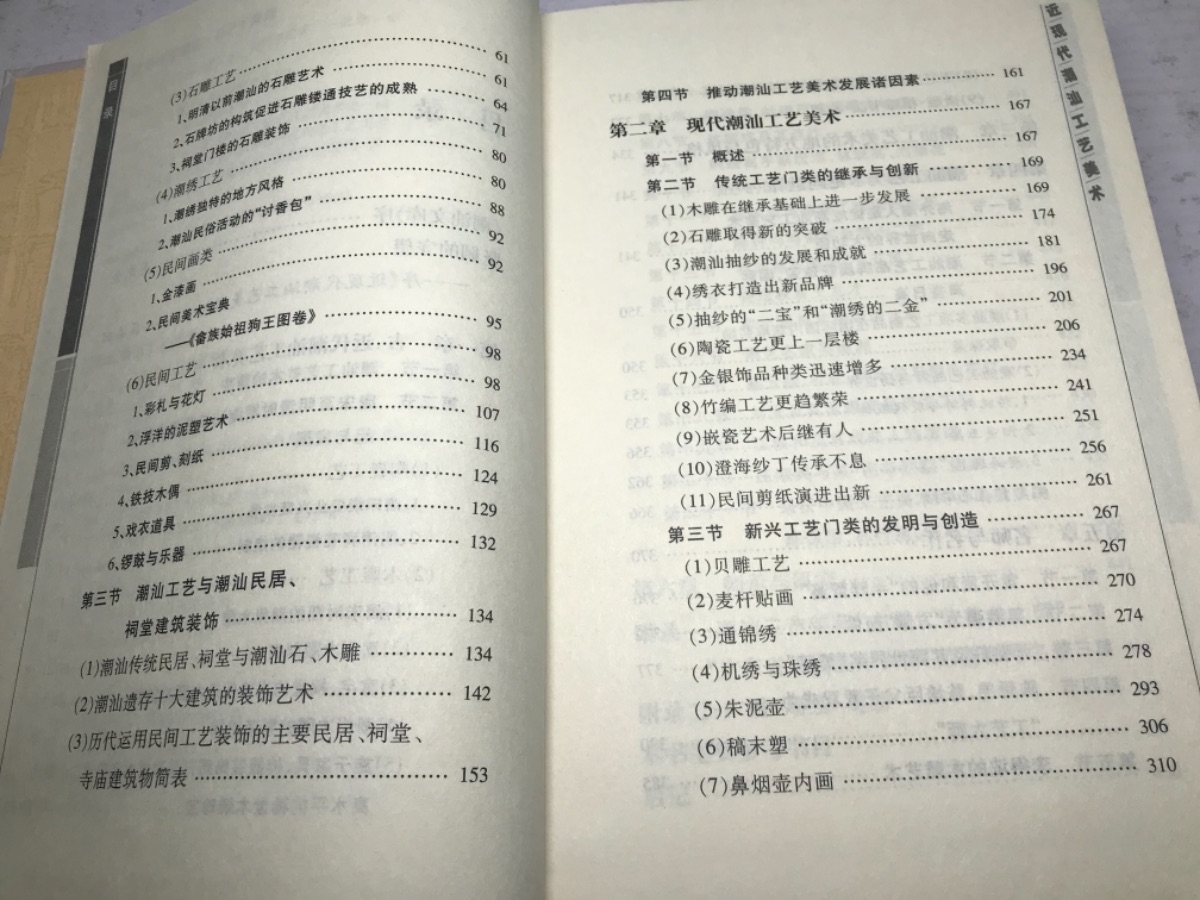 目录
(3)石雕工艺 …… 61
1、明清以前潮汕的石雕艺术 …… 61
2、石牌坊的构筑促进石雕镂通技艺的成熟 …… 64
3、祠堂门楼的石雕装饰 …… 71
(4)潮绣工艺 …… 80
1、潮绣独特的地方风格 …… 80
2、潮汕民俗活动的“讨香包” …… 88
(5)民间画类 …… 92
1、金漆画 …… 92
2、民间美术宝典
——《畲族始祖狗王图卷》 …… 95
(6)民间工艺 …… 98
1、彩札与花灯 …… 98
2、浮洋的泥塑艺术 …… 107
3、民间剪、刻纸 …… 116
4、铁技木偶 …… 124
5、戏衣道具 …… 129
6、锣鼓与乐器 …… 132
第三节 潮汕工艺与潮汕民居、
祠堂建筑装饰 …… 134
(1)潮汕传统民居、祠堂与潮汕石、木雕 …… 134
(2)潮汕遗存十大建筑的装饰艺术 …… 142
(3)历代运用民间工艺装饰的主要民居、祠堂、
寺庙建筑物简表 …… 153
近现代潮汕工艺美术
第四节 推动潮汕工艺美术发展诸因素 …… 161
第二章 现代潮汕工艺美术 …… 167
第一节 概述 …… 167
第二节 传统工艺门类的继承与创新 …… 169
(1)木雕在继承基础上进一步发展 …… 169
(2)石雕取得新的突破 …… 174
(3)潮汕抽纱的发展和成就 …… 181
(4)绣衣打造出新品牌 …… 196
(5)抽纱的“二宝”和“潮绣的二金” …… 201
(6)陶瓷工艺更上一层楼 …… 206
(7)金银饰品种类迅速增多 …… 234
(8)竹编工艺更趋繁荣 …… 241
(9)嵌瓷艺术后继有人 …… 251
(10)澄海纱丁传承不息 …… 256
(11)民间剪纸演进出新 …… 261
第三节 新兴工艺门类的发明与创造 …… 267
(1)贝雕工艺 …… 267
(2)麦杆贴画 …… 270
(3)通锦绣 …… 274
(4)机绣与珠绣 …… 278
(5)朱泥壶 …… 293
(6)稿末塑 …… 306
(7)鼻烟壶内画 …… 310